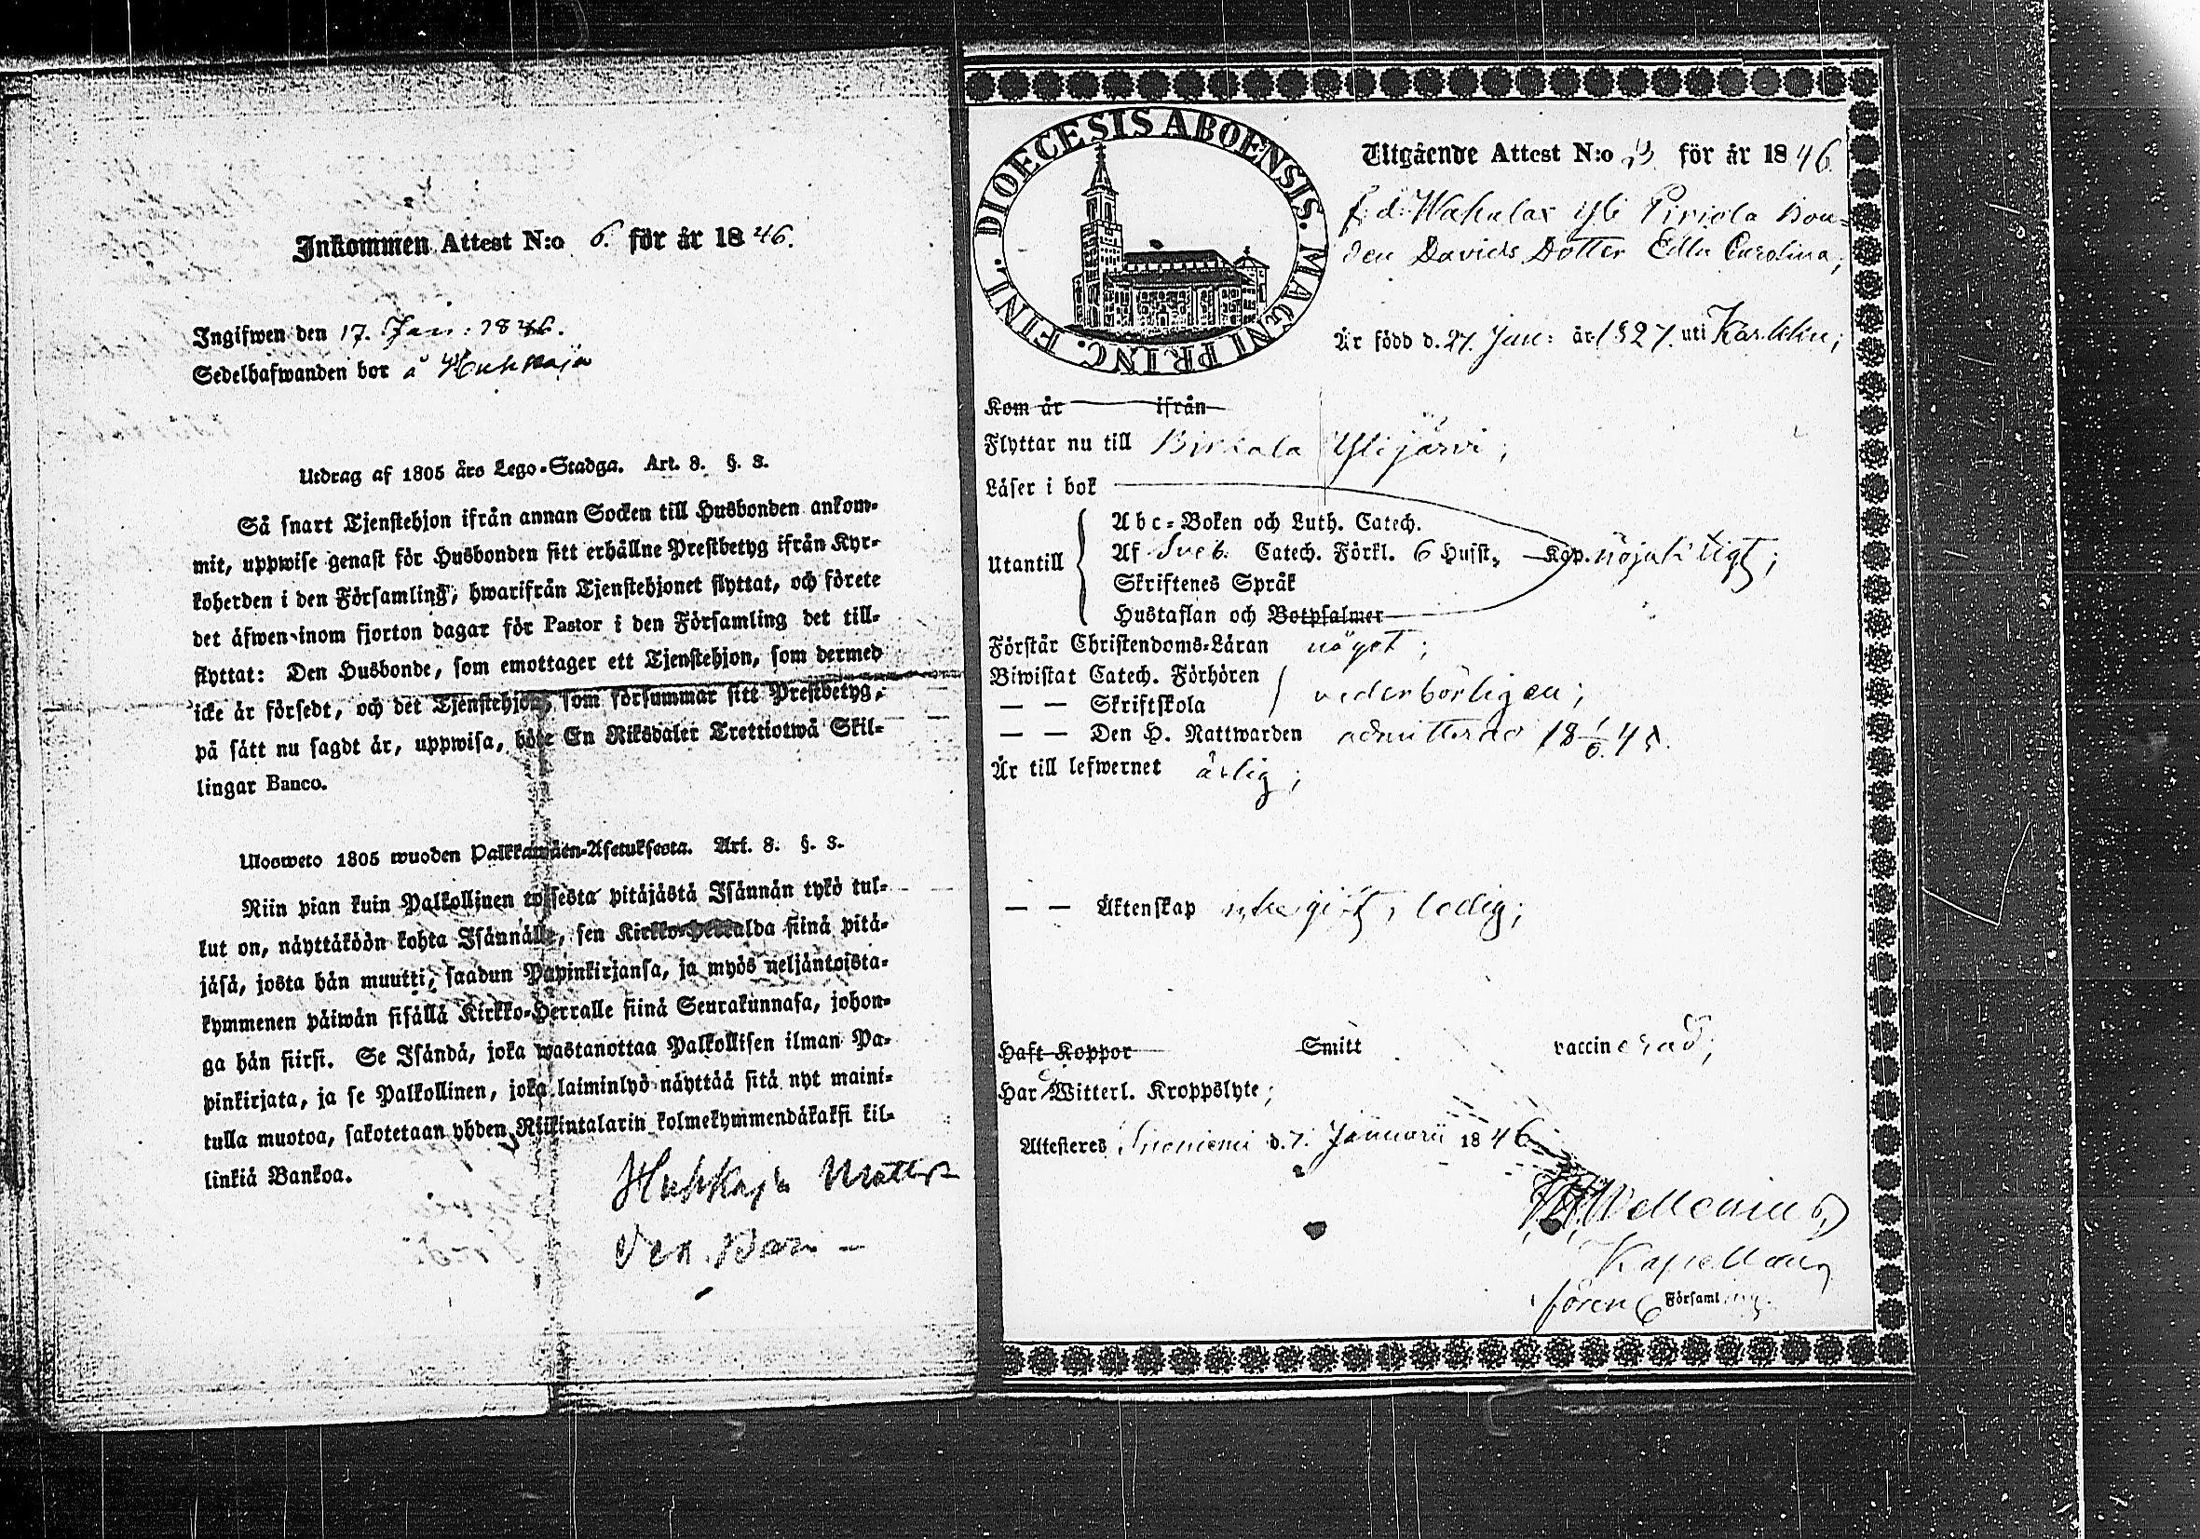 Inkommen Attest N:o 6. för år 1846.
Ingifwen den 17. Jan: 1846.
Sedelhafwanden bor å Huhkaja
Utdrag af 1805 års Lego-Stadga. Art. 8. §. 3.
Så snart Tjenstehjon ifrån annan Socken till Husbonden ankom-
mit, uppwise genast för Husbonden sitt erhållne Prestbetyg ifrån Kyr-
koherden i den Församling, hwarifrån Tjenstehjonet flyttat, och förete
det äfwen inom fjorton dagar för Pastor i den Församling det till-
flyttat: Den Husbonde, som emottager ett Tjenstehjon, som dermed
icke är försedt, och det Tjenstehjon, som försummar sitt Prestbetyg,
på sätt nu sagdt är, uppwisa, böte En Riksdaler Trettiotwå Skil-
lingar Banco.
Ulosweto 1805 wuoden Palkkawäen-Asetuksesta. Art. 8. §. 3.
Niin pian kuin Palkollinen toisesta pitäjästä Isännän tykö tul-
lut on, näyttäköön kohta Isännälle, sen Kirkko-Herralda siinä pitä-
jäsä, josta hän muutti, saadun Papinkirjansa, ja myös neljäntoista-
kymmenen päiwän sisällä Kirkko-Herralle siinä Seurakunnasa, johon-
ga hän siirsi. Se Isändä, joka wastanottaa Palkollisen ilman Pa-
pinkirjata, ja se Palkollinen, joka laiminlyö näyttää sitä nyt maini-
tulla muotoa, sakotetaan yhden Riikintalarin kolmekymmendäkaksi kil-
linkiä Bankoa.
Huhkaja
DIOECESIS ABOENSIS. MAGNI PRINC. FINL.
Utgående Attest N:o för år 1846.
f. d. Yli Piriola Bon-
den Davids Dotter Edla Carolina,
Är född d. 27. Jan: år 1827. uti Karkku;
Kom år ifrån
Flyttar nu till Birkala Ylijärvi;
Läser i bok
Abc-Boken och Luth. Catech.
Utantill Af Sveb. Catech. Förkl. 6 Hufst. Kap. nöjaktigt;
Skriftenes Språk
Hustaflan och Botpsalmer
Förstår Christendoms-Läran något;
Biwistat Catech. Förhören
— — Skriftskola vederbörligen;
— — Den H. Nattwarden admitterad
Är till lefwernet ärlig;
— — Äktenskap ledig;
Haft Koppor Smitt vaccinerad;
Har Witterl. Kroppslyte;
Attesteres Suoniemi d. 7. Januarii 1846
Wellenius
Kapellan
Församling.